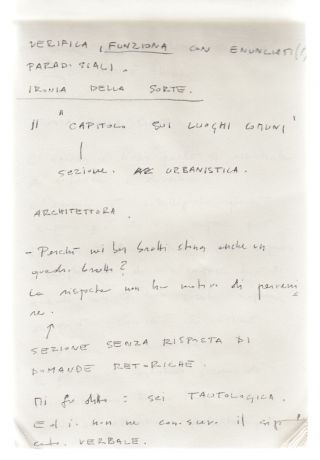 VERIFICA, FUNZIONA CON ENUNCIATI
PARADISIALI.
IRONIA DELLA SORTE.
Il "CAPITOLO SUI LUOGHI COMUNI"
SEZIONE. URBANISTICA.
ARCHITETTORA.
- Perché nei bar brutti anche
quadri brutti?
La risposta non ha motivo di perveni
re.
SEZIONE SENZA RISPOSTA DI
DOMANDE RETORICHE.
Mi fu detto: SEI TAUTOLOGICA.
Ed io non ne conoscevo il
VERBALE.